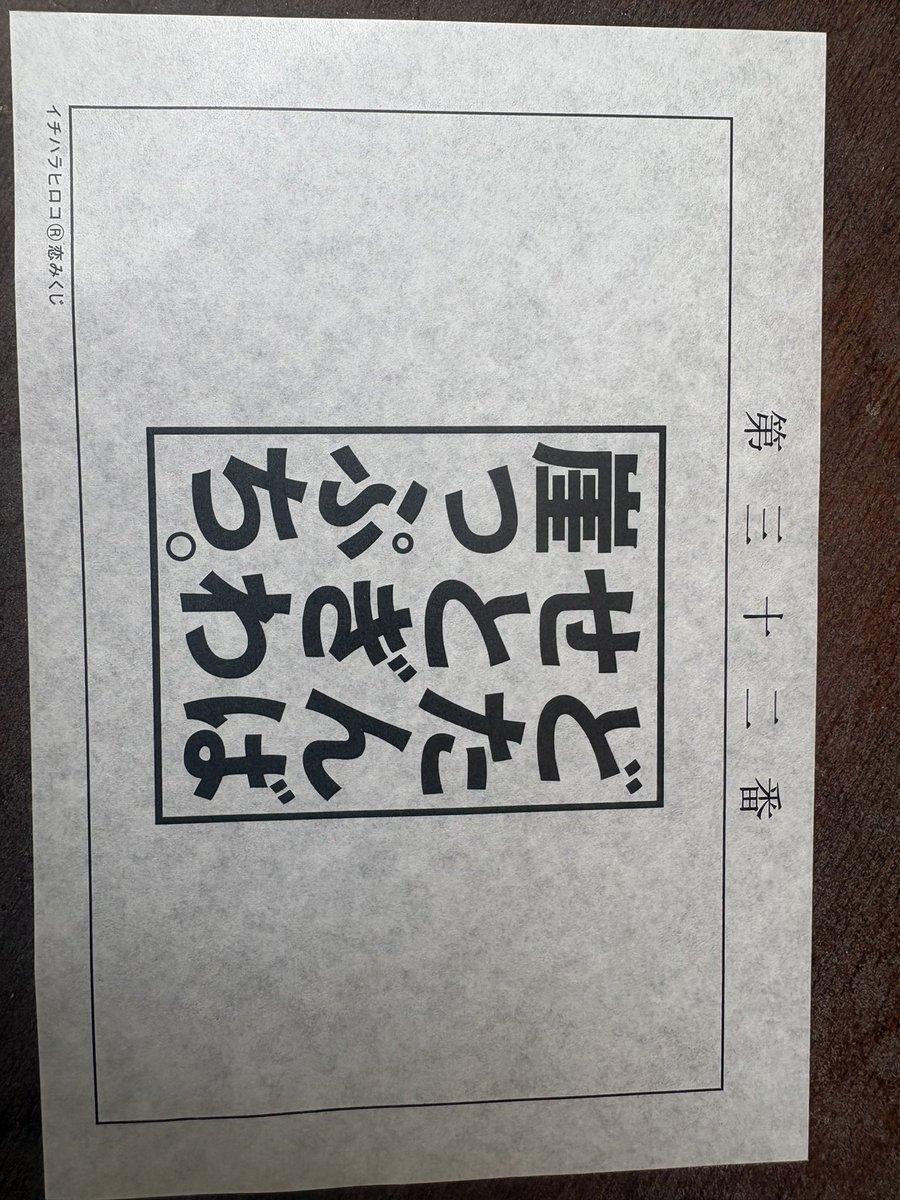 第三十二番
どたんば
せとぎわ
崖っぷち。
イチハラヒロコ®恋みくじ